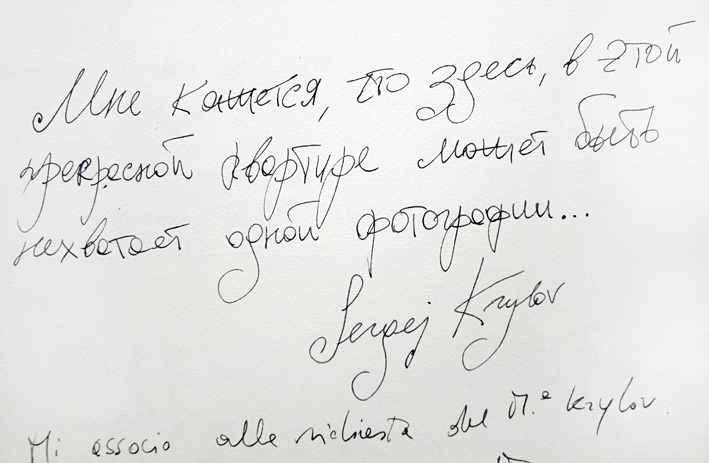 Мне кажется, что здесь, в этой
прекрасной квартире может быть
нехватает одной фотографии...
Sergej Krylov
Mi associo alla richiesta del M.º Krylov.